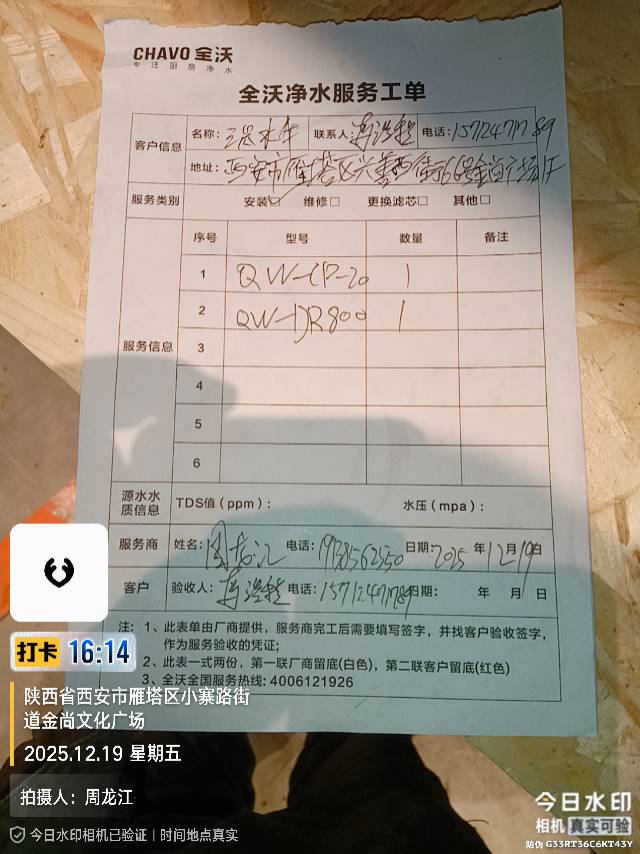 CHAVO 全沃
专注厨房净水
全沃净水服务工单
客户信息 名称： 联系人： 电话：15712471789
地址：西安市雁塔区兴善西街66号金尚广场1F
服务类别 安装☑ 维修□ 更换滤芯□ 其他□
服务信息 序号 型号 数量 备注
1 QW-CP-20 1
2 QW-DR800 1
3
4
5
6
源水水质信息 TDS值（ppm）： 水压（mpa）：
服务商 姓名：周龙江 电话：19138562550 日期：2025年12月19日
客户 验收人： 电话：15712471789 日期： 年 月 日
注：1、此表单由厂商提供，服务商完工后需要填写签字，并找客户验收签字，
作为服务验收的凭证；
2、此表一式两份，第一联厂商留底(白色)，第二联客户留底(红色)
3、全沃全国服务热线: 4006121926
打卡 16:14
陕西省西安市雁塔区小寨路街
道金尚文化广场
2025.12.19 星期五
拍摄人：周龙江
今日水印相机已验证｜时间地点真实
今日水印
相机 真实可验
防伪 G33RT36C6KT43Y